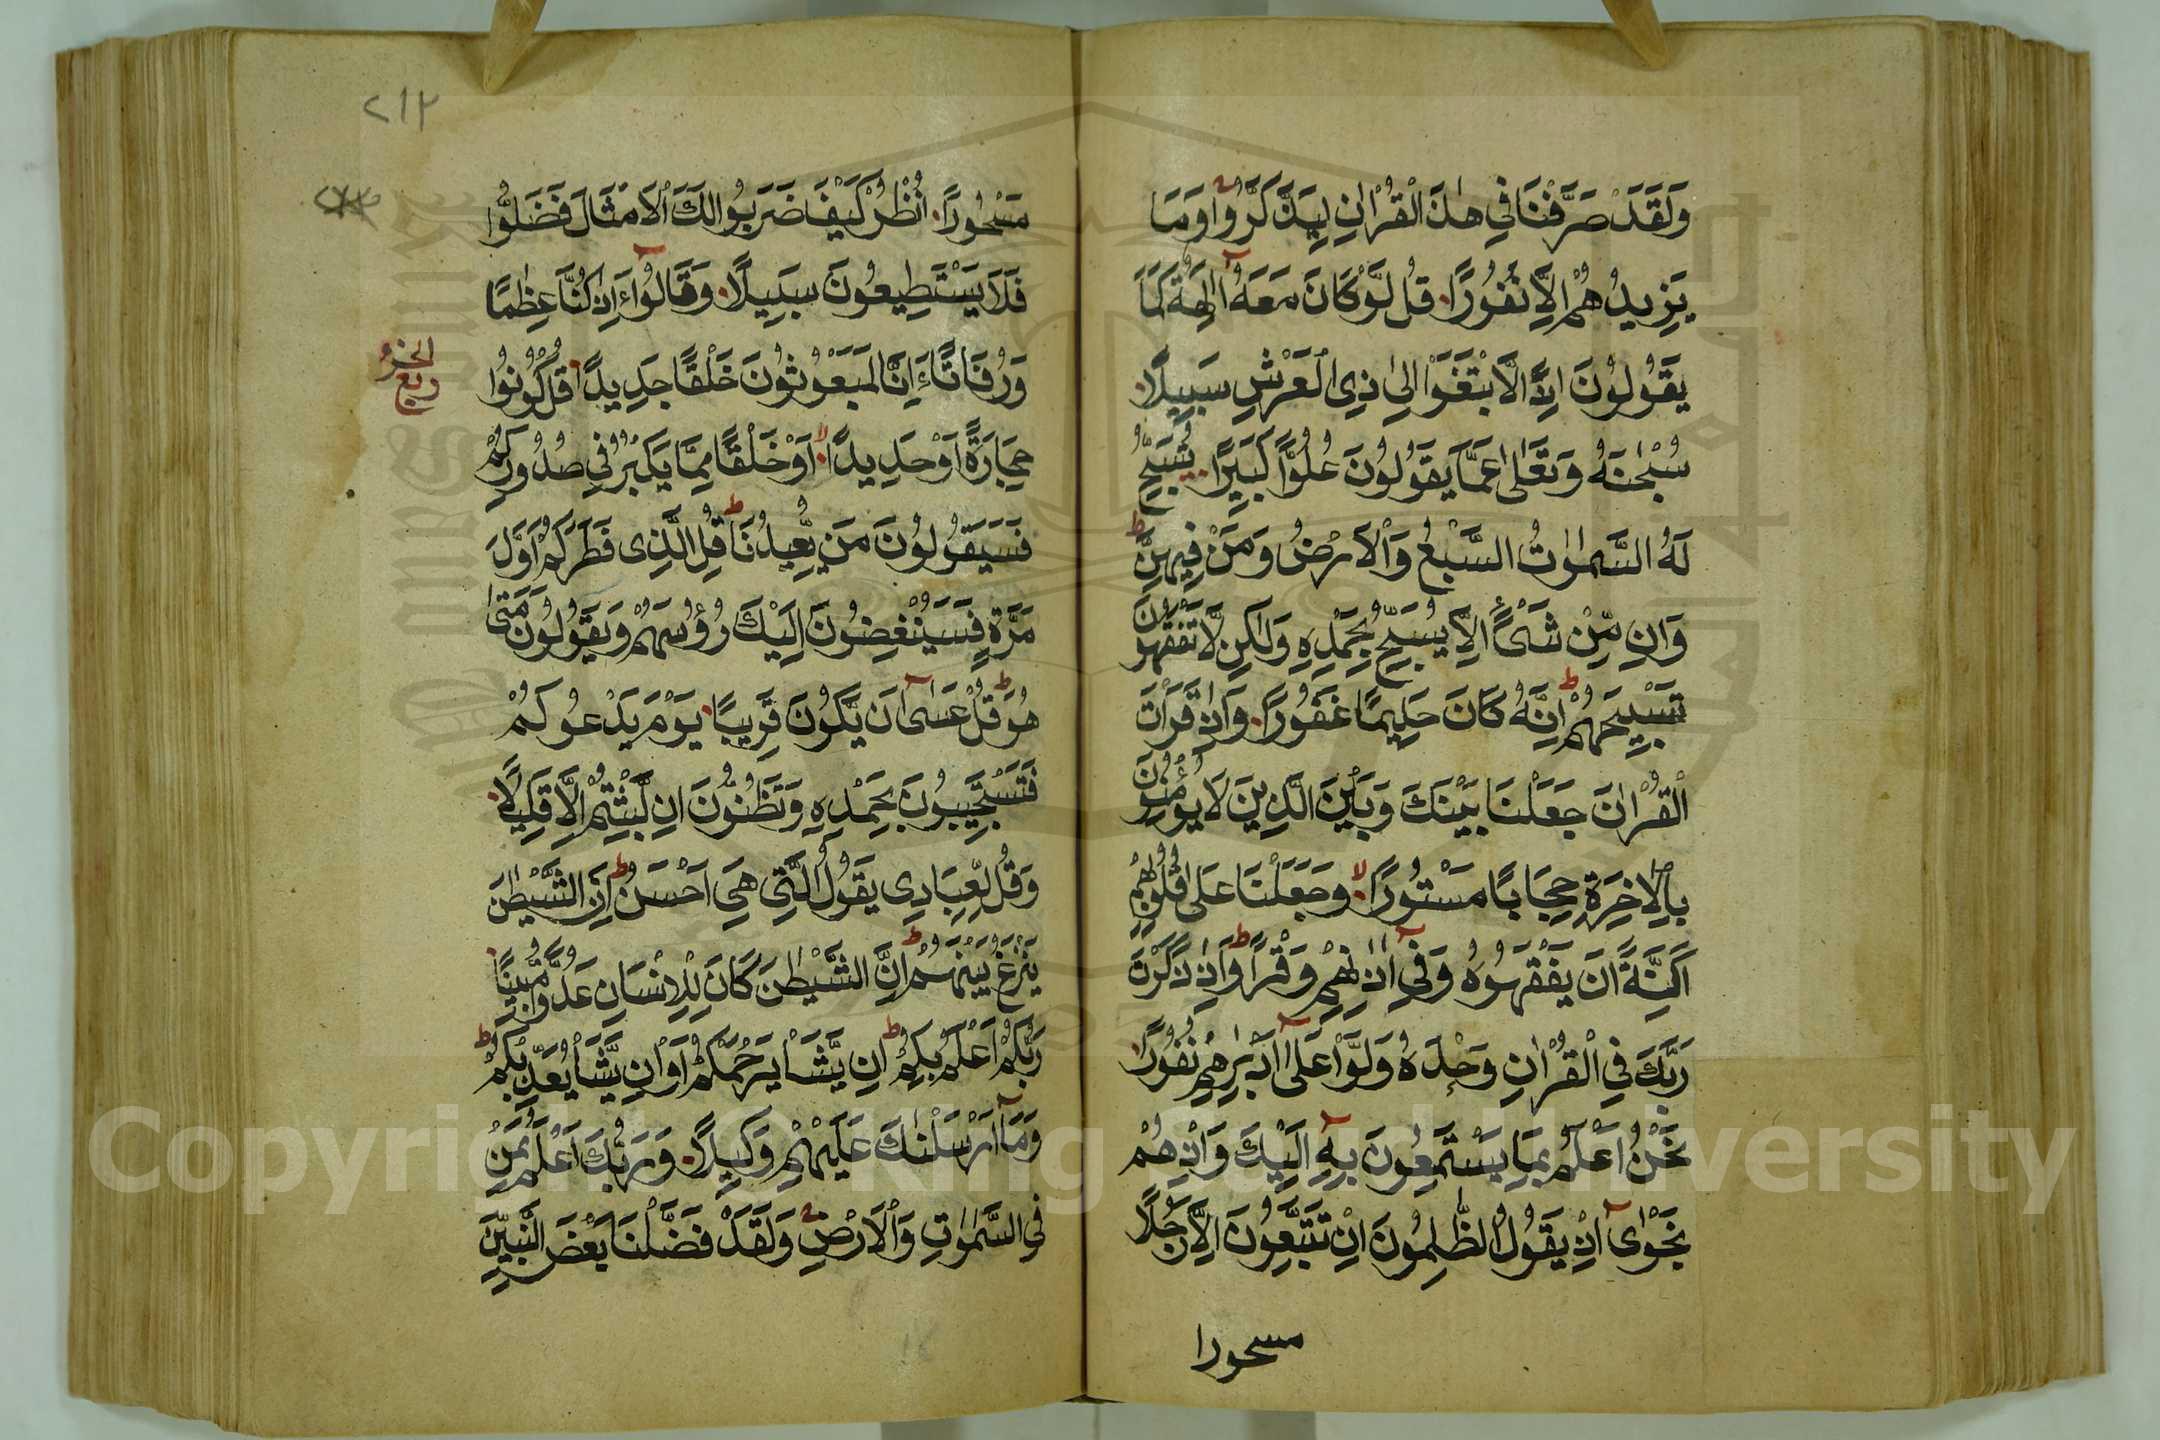 وَلَقَدْ صَرَّفْنَا فِي هٰذَ الْقُرْاٰنِ لِيَذَّكَّرُوا وَمَا
يَزِيدُهُمْ اِلَّا نُفُورًا قُل لَّوْ كَانَ مَعَهُ اٰلِهَةٌ كَمَا
يَقُولُونَ اِذًا لَّابْتَغَوْا اِلىٰ ذِى الْعَرْشِ سَبِيلًا
سُبْحٰنَهُ وَتَعَالٰى عَمَّا يَقُولُونَ عُلُوًّا كَبِيرًا تُسَبِّحُ
لَهُ السَّمٰوٰتُ السَّبْعُ وَالْاَرْضُ وَمَنْ فِيهِنَّ
وَاِن مِّنْ شَىْءٍ اِلَّا يُسَبِّحُ بِحَمْدِهِ وَلٰكِن لَّا تَفْقَهُونَ
تَسْبِيحَهُمْ اِنَّهُ كَانَ حَلِيمًا غَفُورًا وَاِذَا قَرَاْتَ
الْقُرْاٰنَ جَعَلْنَا بَيْنَكَ وَبَيْنَ الَّذِينَ لَا يُؤْمِنُونَ
بِالْاٰخِرَةِ حِجَابًا مَسْتُورًا وَجَعَلْنَا عَلٰى قُلُوبِهِمْ
اَكِنَّةً اَنْ يَفْقَهُوهُ وَفِي اٰذَانِهِمْ وَقْرًا وَاِذَا ذَكَرْتَ
رَبَّكَ فِي الْقُرْاٰنِ وَحْدَهُ وَلَّوْا عَلٰى اَدْبٰرِهِمْ نُفُورًا
نَحْنُ اَعْلَمُ بِمَا يَسْتَمِعُونَ بِهِ اِلَيْكَ وَاِذْ هُمْ
نَجْوٰى اِذْ يَقُولُ الظّٰلِمُونَ اِنْ تَتَّبِعُونَ اِلَّا رَجُلًا
مسحورا
٢١٢
مَسْحُورًا اُنْظُرْ كَيْفَ ضَرَبُوا لَكَ الْاَمْثَالَ فَضَلُّوا
فَلَا يَسْتَطِيعُونَ سَبِيلًا وَقَالُوا ءَاِذَا كُنَّا عِظٰمًا
وَرُفَاتًا ءَاِنَّا لَمَبْعُوثُونَ خَلْقًا جَدِيدًا قُلْ كُونُوا
حِجَارَةً اَوْ حَدِيدًا اَوْ خَلْقًا مِمَّا يَكْبُرُ فِي صُدُورِكُمْ
فَسَيَقُولُونَ مَن يُّعِيدُنَا قُلِ الَّذِى فَطَرَكُمْ اَوَّلَ
مَرَّةٍ فَسَيُنْغِضُونَ اِلَيْكَ رُؤُسَهُمْ وَيَقُولُونَ مَتىٰ
هُوَ قُلْ عَسٰى اَن يَّكُونَ قَرِيبًا يَوْمَ يَدْعُوكُمْ
فَتَسْتَجِيبُونَ بِحَمْدِهِ وَتَظُنُّونَ اِن لَّبِثْتُمْ اِلَّا قَلِيلًا
وَقُل لِّعِبَادِى يَقُولُوا الَّتِى هِىَ اَحْسَنُ اِنَّ الشَّيْطٰنَ
يَنْزَغُ بَيْنَهُمْ اِنَّ الشَّيْطٰنَ كَانَ لِلْاِنْسَانِ عَدُوًّا مُّبِينًا
رَبُّكُمْ اَعْلَمُ بِكُمْ اِن يَّشَاْ يَرْحَمْكُمْ اَوْ اِن يَّشَاْ يُعَذِّبْكُمْ
وَمَا اَرْسَلْنٰكَ عَلَيْهِمْ وَكِيلًا وَرَبُّكَ اَعْلَمُ بِمَنْ
فِي السَّمٰوٰتِ وَالْاَرْضِ وَلَقَدْ فَضَّلْنَا بَعْضَ النَّبِيّٖنَ
ربع
Copyright © King Saud University